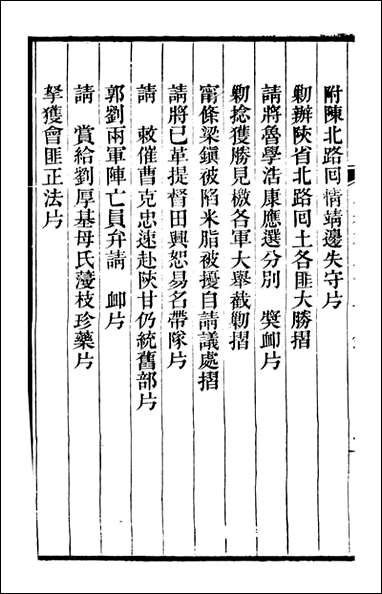 附陳北路囘情靖邊失守片
勦辦陝省北路囘土各匪大勝摺
請將魯學浩康應選分別　奬卹片
勦捻獲勝見檄各軍大舉截勦摺
甯條梁鎭被陷米脂被擾自請議處摺
請將已革提督田興恕易名帶隊片
請　敕催曹克忠速赴陝甘仍統舊部片
郭劉兩軍陣亡員弁請　卹片
請　賞給劉厚基母氏薓枝珍藥片
拏獲會匪正法片